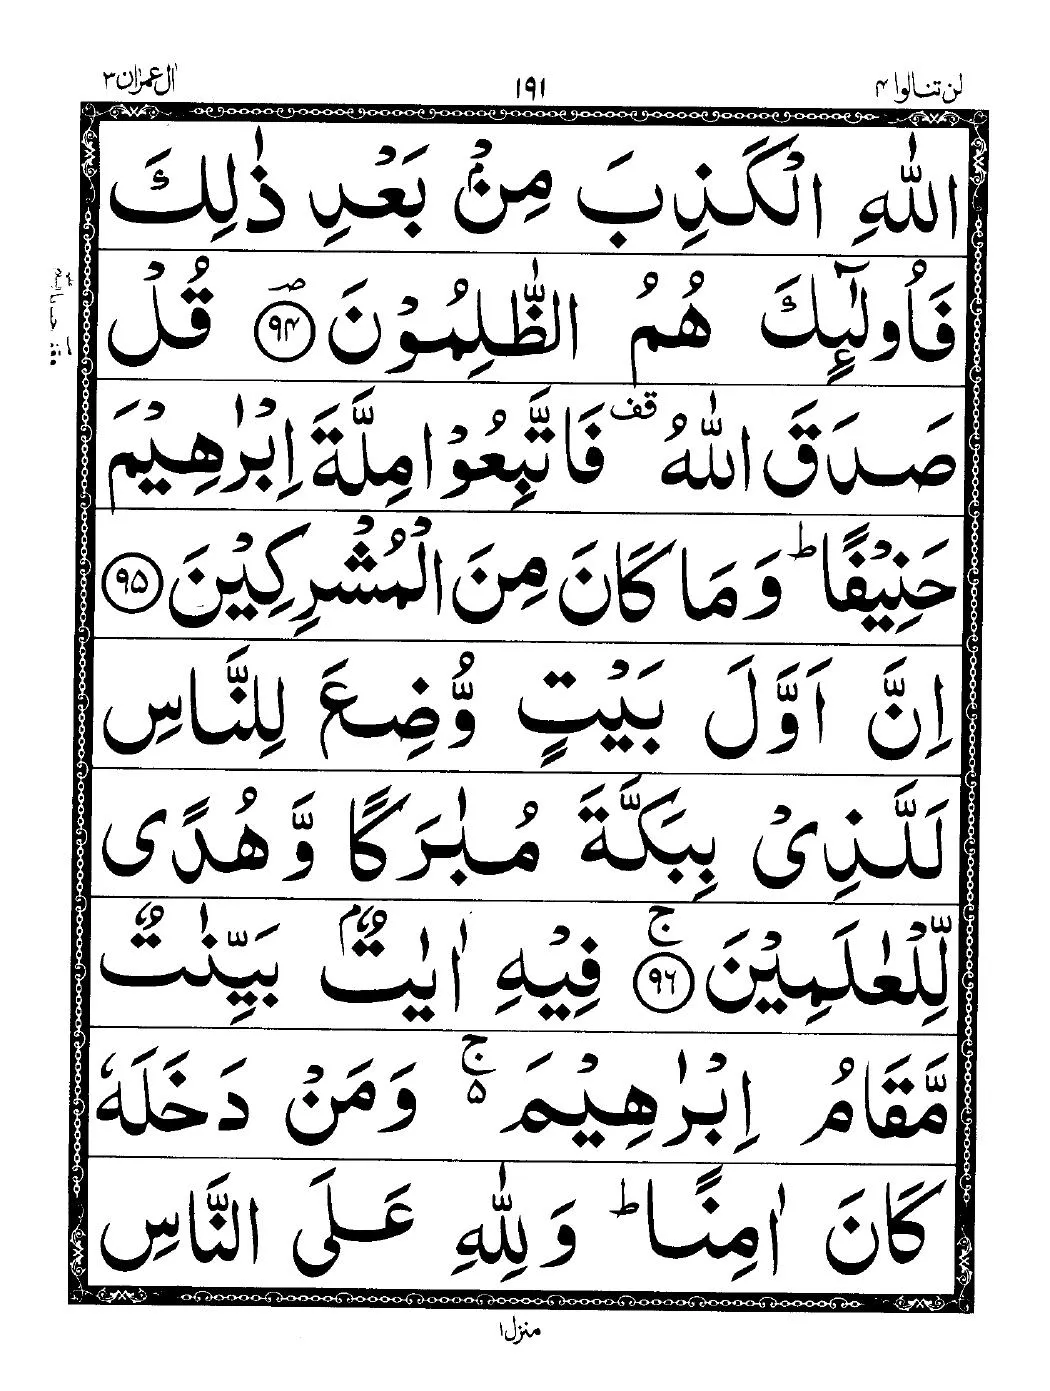 لن تنالوا ۴ ۱۹۱ اٰل عمرٰن ۳
اللّٰهِ الْكَذِبَ مِنْۢ بَعْدِ ذٰلِكَ
فَاُولٰٓئِكَ هُمُ الظّٰلِمُوْنَ ﴿۹۴﴾ؔ قُلْ
صَدَقَ اللّٰهُ قف فَاتَّبِعُوْا مِلَّةَ اِبْرٰهِيْمَ
حَنِيْفًا ؕ وَمَا كَانَ مِنَ الْمُشْرِكِيْنَ ﴿۹۵﴾
اِنَّ اَوَّلَ بَيْتٍ وُّضِعَ لِلنَّاسِ
لَلَّذِىْ بِبَكَّةَ مُبٰرَكًا وَّهُدًى
لِّلْعٰلَمِيْنَ ﴿۹۶﴾ۚ فِيْهِ اٰيٰتٌۢ بَيِّنٰتٌ
مَّقَامُ اِبْرٰهِيْمَ ۚ۵ وَمَنْ دَخَلَهٗ
كَانَ اٰمِنًا ؕ وَلِلّٰهِ عَلَى النَّاسِ
منزل ۱